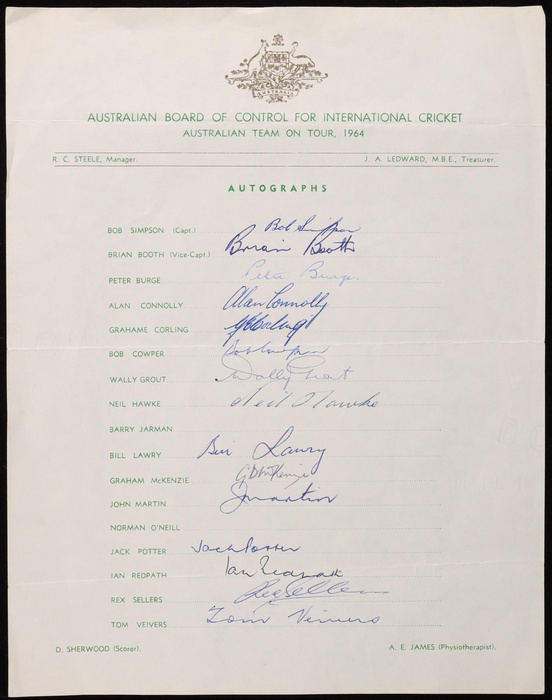 AUSTRALIAN BOARD OF CONTROL FOR INTERNATIONAL CRICKET
AUSTRALIAN TEAM ON TOUR, 1964
R. C. STEELE, Manager. J. A. LEDWARD, M.B.E., Treasurer.
AUTOGRAPHS
BOB SIMPSON (Capt.) Bob Simpson
BRIAN BOOTH (Vice-Capt.) Brian Booth
PETER BURGE Peter Burge
ALAN CONNOLLY Alan Connolly
GRAHAME CORLING G E Corling
BOB COWPER Bob Cowper
WALLY GROUT Wally Grout
NEIL HAWKE Neil Hawke
BARRY JARMAN
BILL LAWRY Bill Lawry
GRAHAM McKENZIE G D McKenzie
JOHN MARTIN J Martin
NORMAN O'NEILL
JACK POTTER Jack Potter
IAN REDPATH Ian Redpath
REX SELLERS Rex Sellers
TOM VEIVERS Tom Veivers
D. SHERWOOD (Scorer). A. E. JAMES (Physiotherapist).